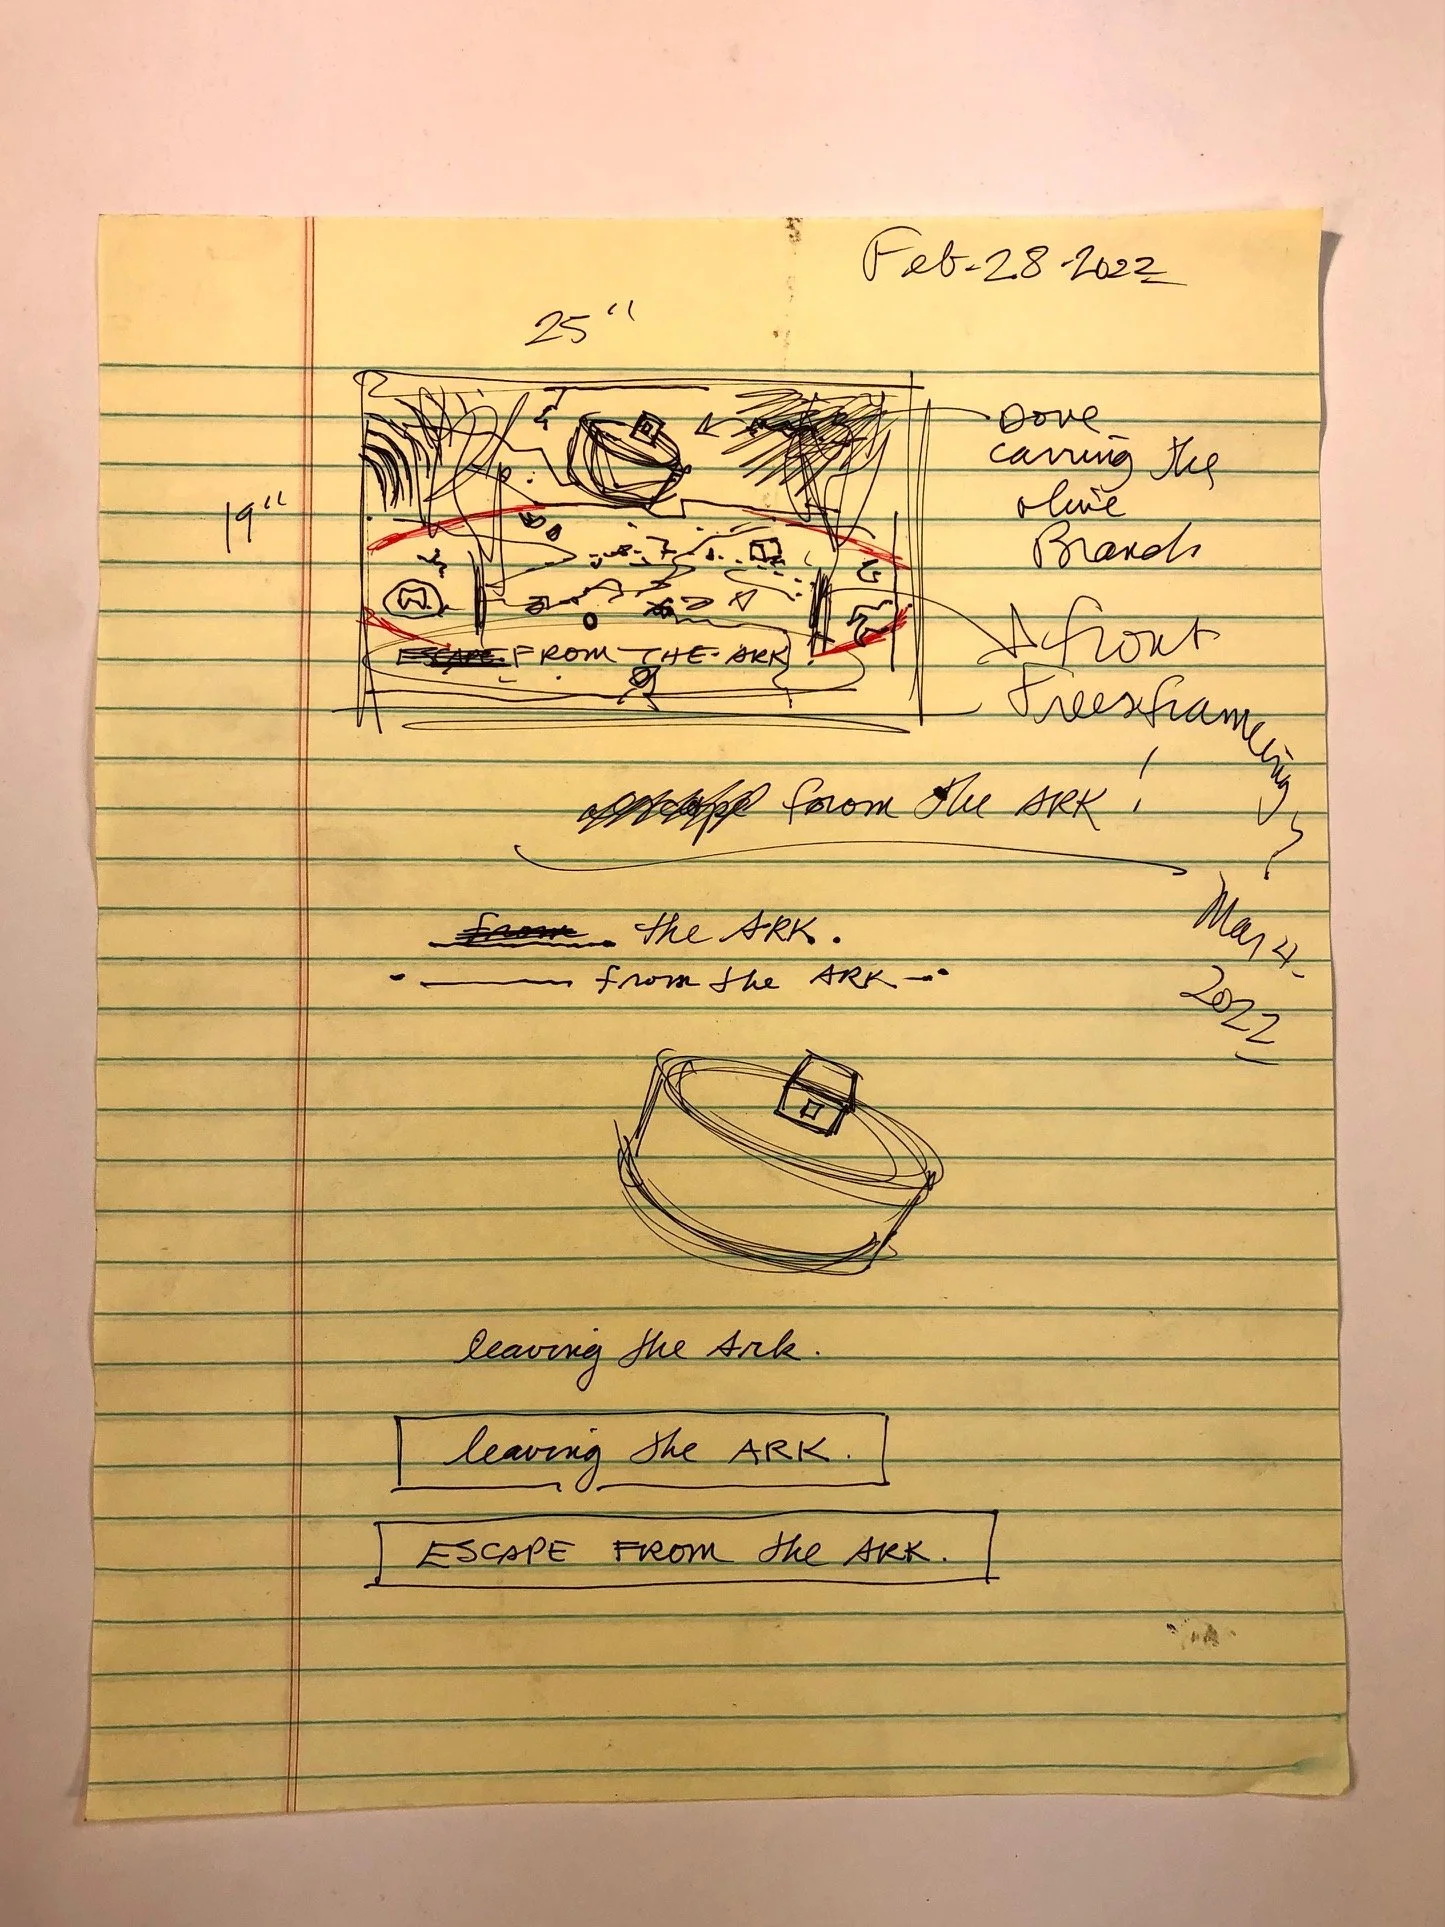 Feb-28-2022
25"
19"
Dove
carring the
olive
Branch
ESCAPE FROM THE ARK
A front
Trees framing
from the ARK!
Mar 4-
2022
from the ARK.
from the ARK
leaving the Ark.
leaving the ARK.
ESCAPE FROM the ARK.